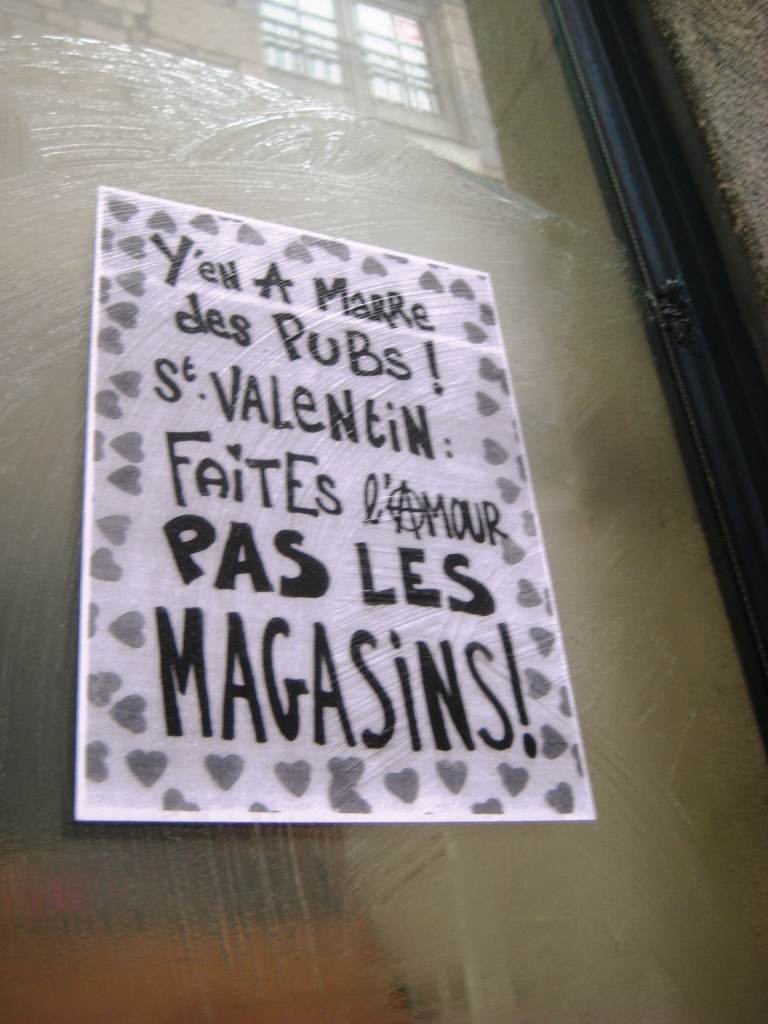 Y'EN A MARRE
des PUBS !
St. VALENTIN :
FAITES l'AMOUR
PAS LES
MAGASINS !